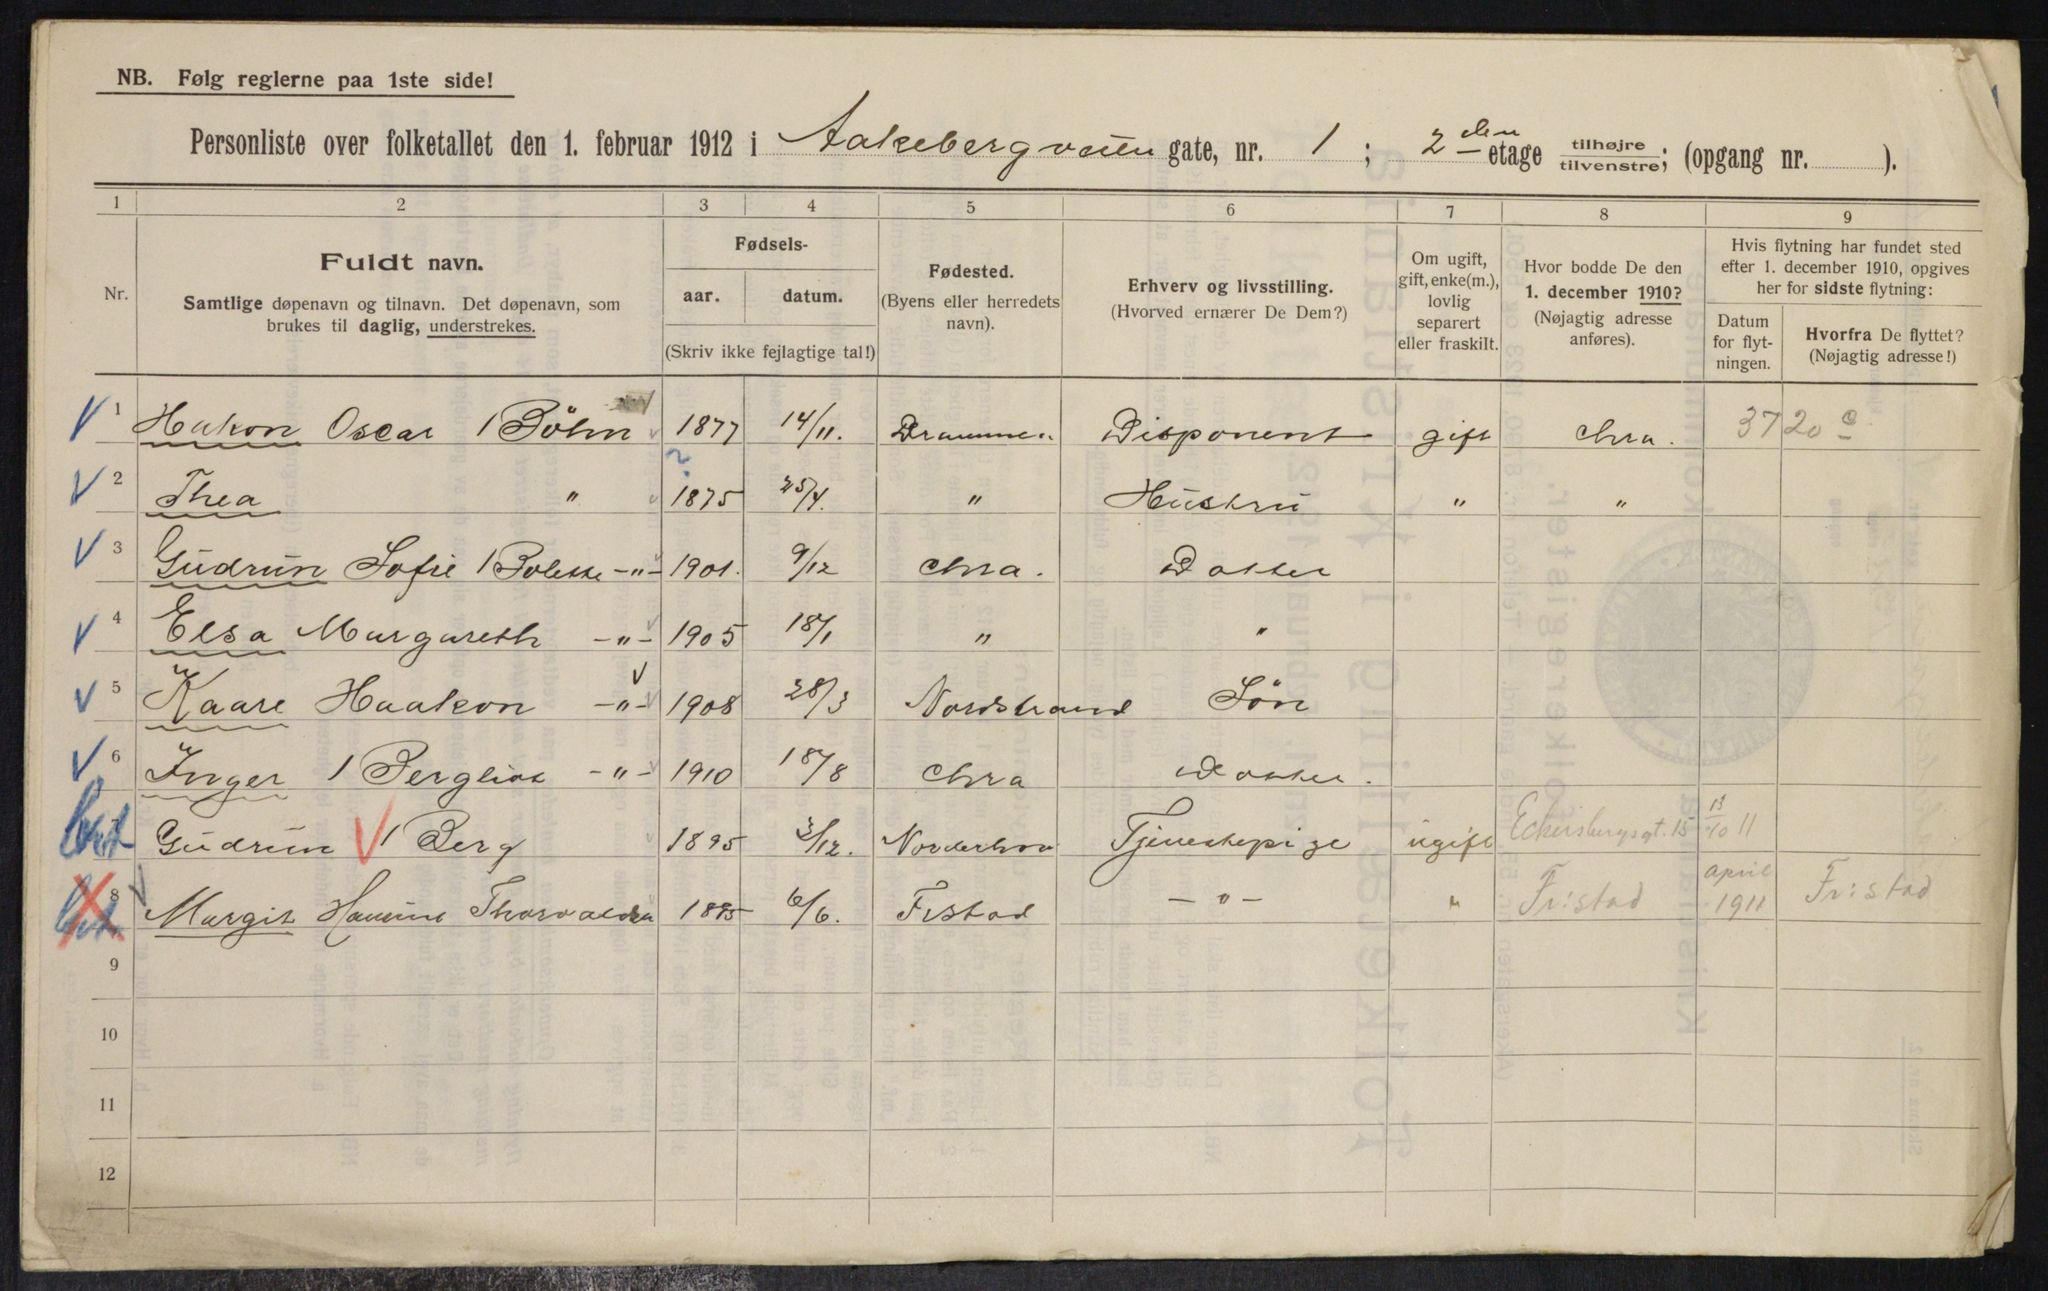 NB. Følg reglerne paa 1ste side!
Personliste over folketallet den 1. februar 1912 i Aakebergveien gate, nr. 1 ; 2den etage tilhøjre tilvenstre; (opgang nr. ).
1 2 3 4 5 6 7 8 9
Nr.
Fuldt navn.
Samtlige døpenavn og tilnavn. Det døpenavn, som
brukes til daglig, understrekes.
Fødsels-
aar. datum.
(Skriv ikke fejlagtige tal!)
Fødested.
(Byens eller herredets
navn).
Erhverv og livsstilling.
(Hvorved ernærer De Dem?)
Om ugift,
gift, enke(m.),
lovlig
separert
eller fraskilt.
Hvor bodde De den
1. december 1910?
(Nøjagtig adresse
anføres).
Hvis flytning har fundet sted
efter 1. december 1910, opgives
her for sidste flytning:
Datum
for flyt-
ningen.
Hvorfra De flyttet?
(Nøjagtig adresse!)
1 Hakon Oscar Böhn 1877 14/11. Drammen Disponent gift Chra. 3720 c
2 Thea " 1875 25/4. " Hustru " "
3 Gudrun Sofie Bolette -"- 1901. 9/12 Chra. Datter
4 Elsa Margareth -"- 1905 18/1 " "
5 Kaare Haakon -"- 1908 28/3 Nordstrand Sön
6 Inger Bergliot -"- 1910 18/8 Chra Datter.
7 Gudrun Berg 1895 3/12. Norderhov Tjenestepige ugift Eckersbergsgt. 15 13/10 11
8 Margit Thorvaldsen 1885 6/6. Frstad -"- " Fr:stad april 1911 Fr:stad
9
10
11
12